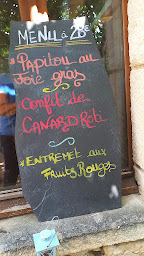 MENU à 28€
* Papitou au
foie gras
* Confit de
CANARD Roti
* ENTREMET aux
Fruits Rouges